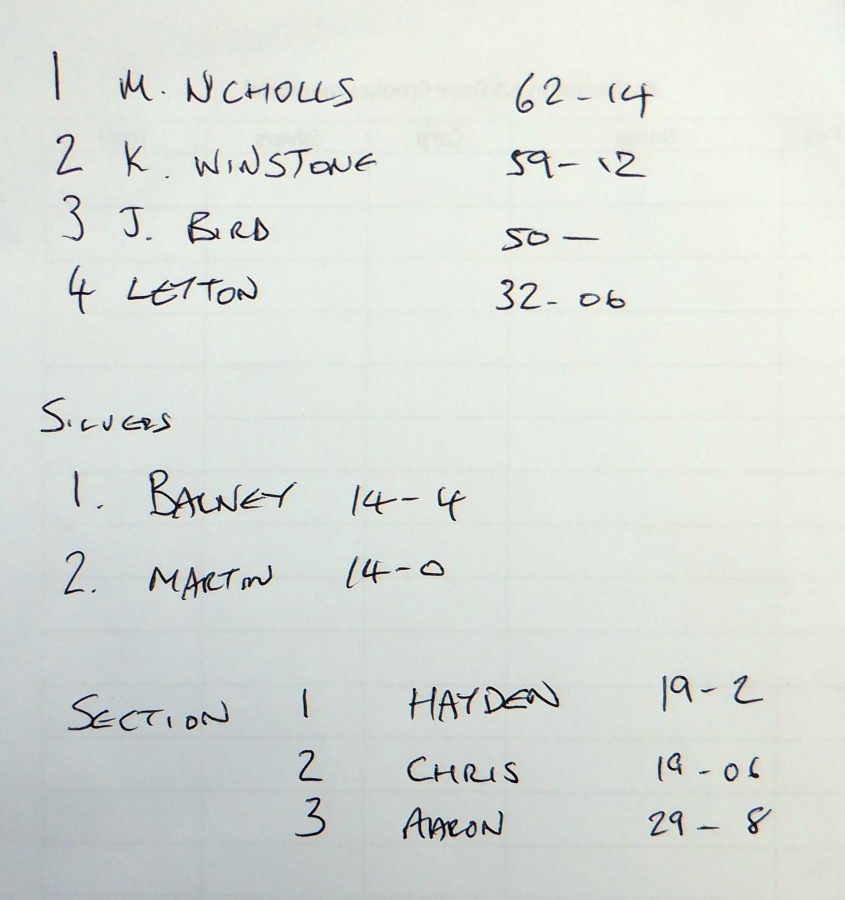 1 M. NICHOLLS 62-14
2 K. WINSTONE 59-12
3 J. BIRD 50-
4 LEYTON 32-06
SILVERS
1. BALNEY 14-4
2. MARTIN 14-0
SECTION 1 HAYDEN 19-2
2 CHRIS 19-06
3 AARON 29-8